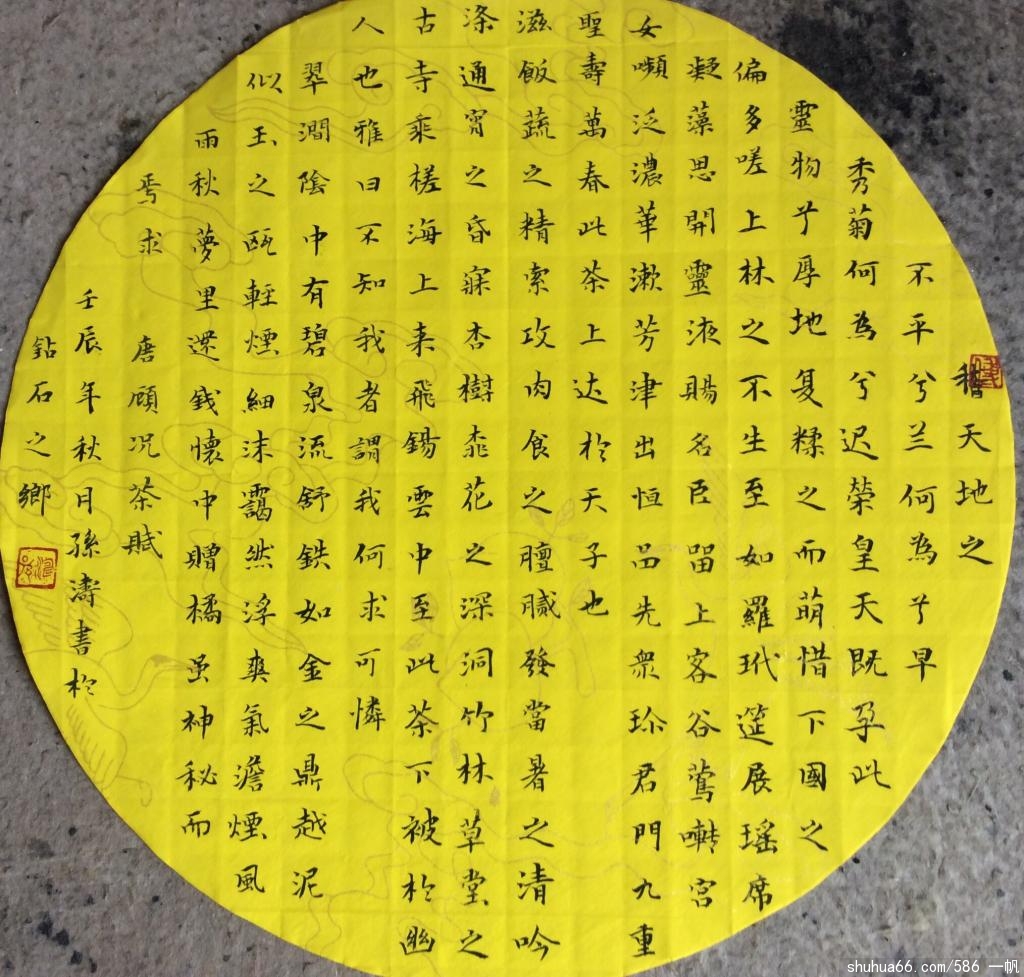 稽天地之
不平兮兰何為兮早
秀菊何為兮迟榮皇天既孕此
靈物兮厚地复糅之而萌惜下國之
偏多嗟上林之不生至如羅玳筵展瑶席
凝藻思開靈液賜名臣留上客谷鶯囀宮
女嚬泛濃華漱芳津出恒品先衆珍君門九重
聖壽萬春此茶上达於天子也
滋飯蔬之精索攻肉食之膻膩發當暑之清吟
涤通宵之昏寐杏樹桃花之深洞竹林草堂之
古寺乘槎海上来飛錫雲中至此茶下被於幽
人也雅曰不知我者謂我何求可憐
翠澗陰中有碧泉流舒鉄如金之鼎越泥
似玉之甌輕煙細沫靄然浮爽氣澹煙風
雨秋夢里還錢懷中贈橘虽神秘而
焉求
唐顾况茶賦
壬辰年秋月孫濤書於
钻石之鄉
shuhua66.com/586 一帆